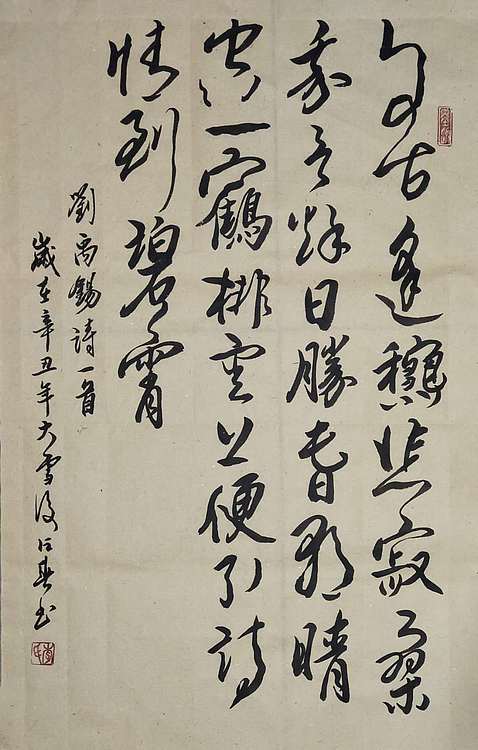 自古逢穐悲寂寥
我言秌日勝春朝晴
空一鶴排雲上便引詩
情到碧霄
劉禹錫詩一首
歲在辛丑年大雪後春书